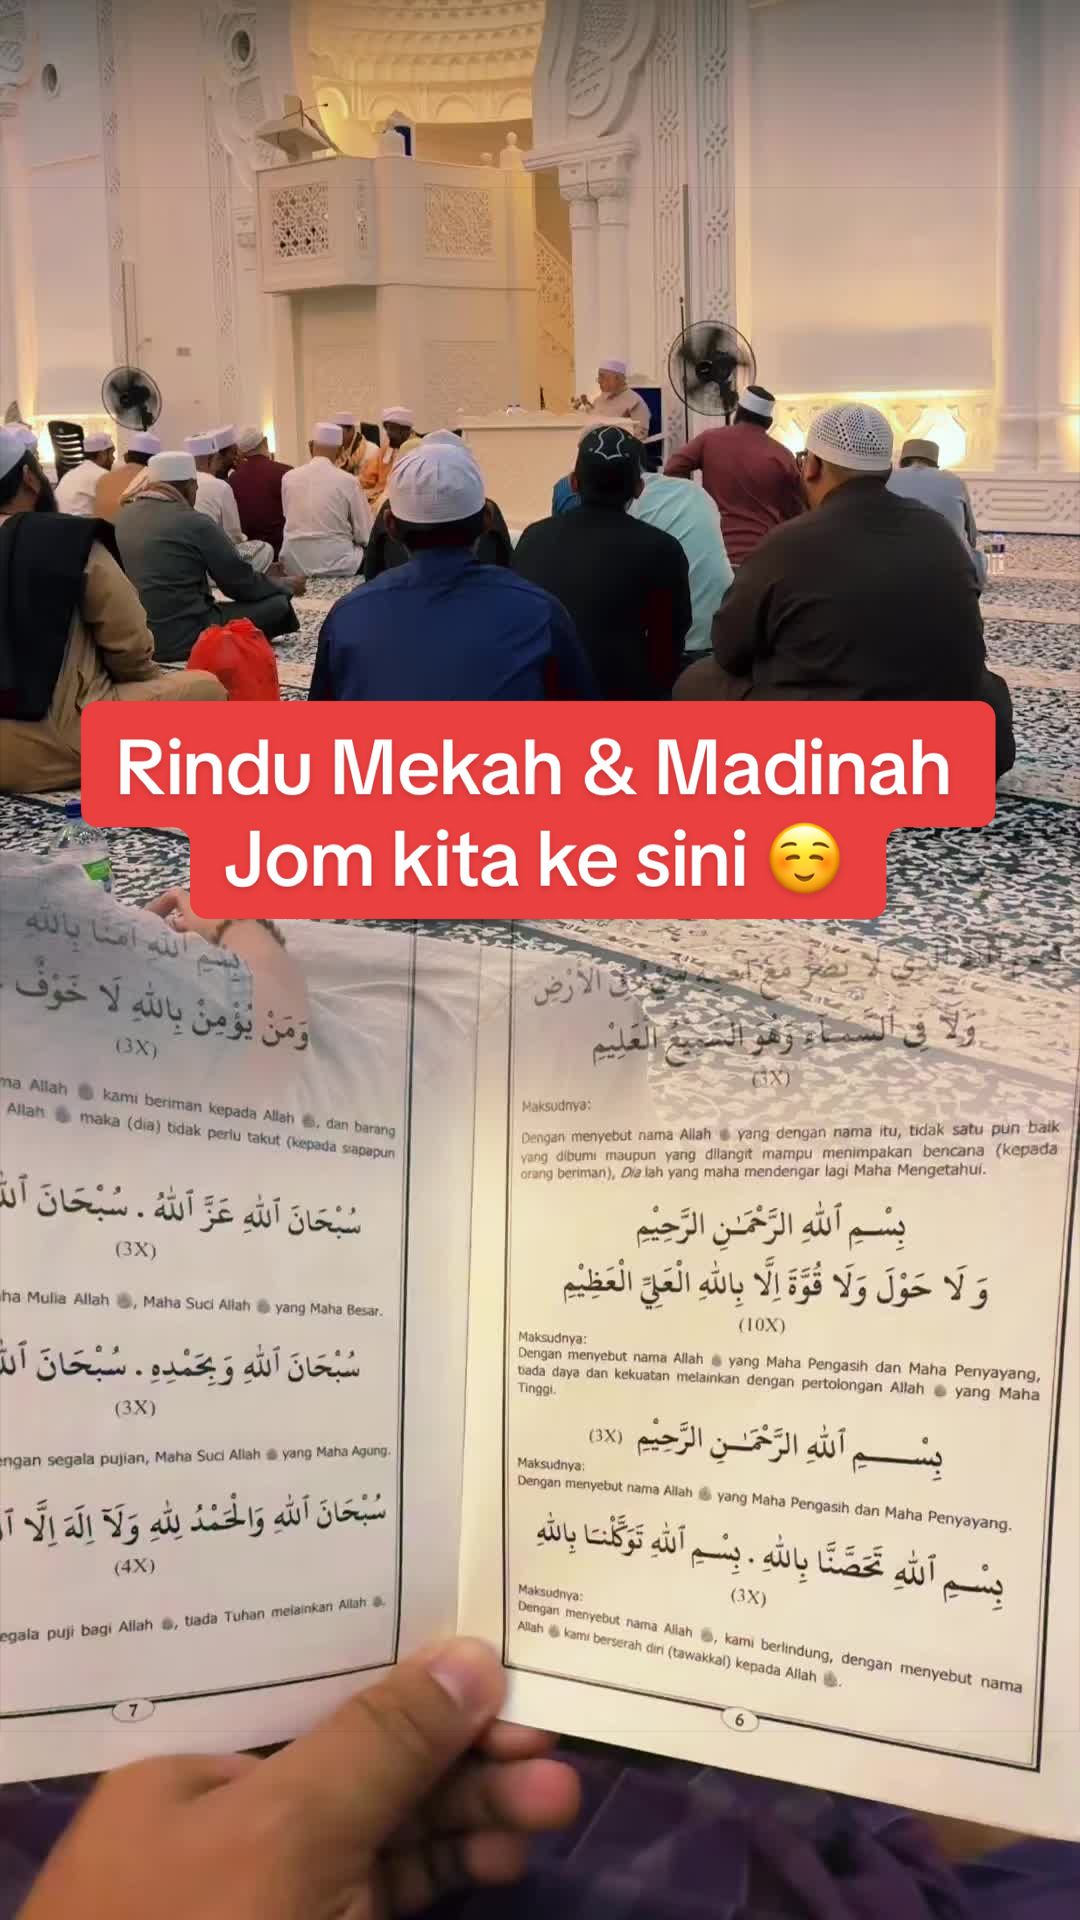 Rindu Mekah & Madinah
Jom kita ke sini ☺️
وَلَا فِي السَّمَآءِ وَهُوَ السَّمِيعُ الْعَلِيْمِ
(3X)
Maksudnya:
Dengan menyebut nama Allah ﷻ yang dengan nama itu, tidak satu pun baik
yang dibumi maupun yang dilangit mampu menimpakan bencana (kepada
orang beriman), Dia lah yang maha mendengar lagi Maha Mengetahui.
بِسْمِ ٱللهِ الرَّحْمَـٰنِ الرَّحِيْمِ
وَ لَا حَوْلَ وَلَا قُوَّةَ اِلَّا بِاللهِ الْعَلِيِّ الْعَظِيْمِ
(10X)
Maksudnya:
Dengan menyebut nama Allah ﷻ yang Maha Pengasih dan Maha Penyayang,
tiada daya dan kekuatan melainkan dengan pertolongan Allah ﷻ yang Maha
Tinggi.
بِسْمِ ٱللهِ الرَّحْمَـٰنِ الرَّحِيْمِ (3X)
Maksudnya:
Dengan menyebut nama Allah ﷻ yang Maha Pengasih dan Maha Penyayang.
بِسْمِ ٱللهِ تَحَصَّنَّا بِاللهِ . بِسْمِ ٱللهِ تَوَكَّلْنَا بِاللهِ
(3X)
Maksudnya:
Dengan menyebut nama Allah ﷻ, kami berlindung, dengan menyebut nama
Allah ﷻ kami berserah diri (tawakkal) kepada Allah ﷻ.
6
بِسْمِ اللهِ اٰمَنَّا بِاللهِ
وَمَنْ يُؤْمِنْ بِاللهِ لَا خَوْفٌ
(3X)
Allah ﷻ kami beriman kepada Allah ﷻ, dan barang
Allah ﷻ maka (dia) tidak perlu takut (kepada siapapun
سُبْحَانَ ٱللهِ عَزَّ ٱللهُ . سُبْحَانَ
(3X)
Mulia Allah ﷻ, Maha Suci Allah ﷻ yang Maha Besar.
سُبْحَانَ ٱللهِ وَبِحَمْدِهِ . سُبْحَانَ
(3X)
segala pujian, Maha Suci Allah ﷻ yang Maha Agung.
سُبْحَانَ ٱللهِ وَالْحَمْدُ لِلهِ وَلَآ اِلَهَ اِلَّا
(4X)
puji bagi Allah ﷻ, tiada Tuhan melainkan Allah ﷻ.
7